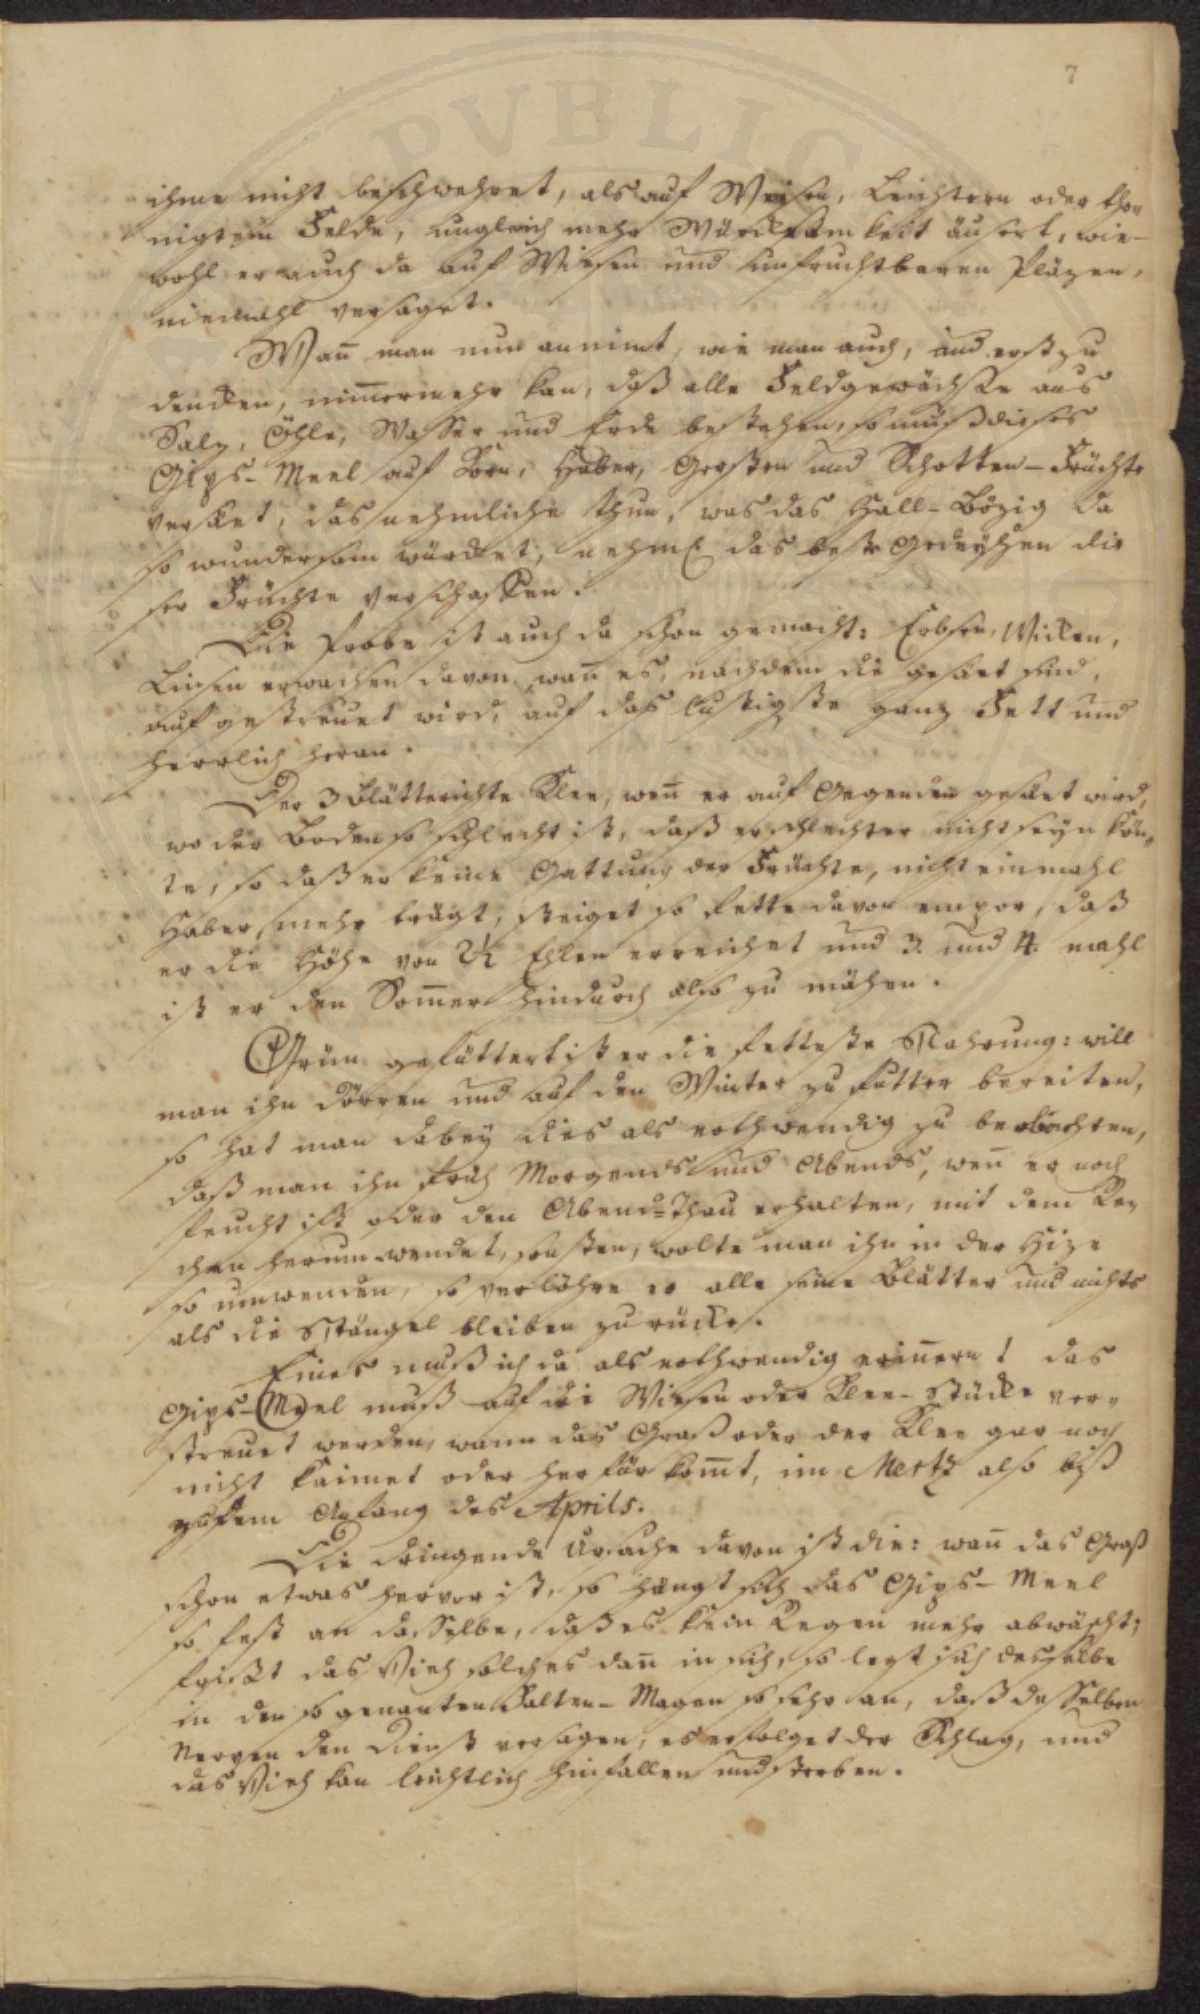 7
ihme nicht beschwehret, als auf Wiesen, Leichtern oder tho„
nigtem Felde, ungleich mehr Würcksamkeit äusert, wie-
wohl er auch da auf Wiesen und unfruchtbaren Pläzen,
niemahl versaget.
Wañ man nun annimt, wie man auch, und erst zu
dencken, nim̄ermehr kan, daß alle Feldgewächse aus
Salz, Öhle, Wasser und Erde bestehen, so muß dieses
Gips-Meel auf Korn, Haber, Gersten und Schotten-Früchte
versäet, das nehmliche thun, was das Hall-Bözig da
so wundersam würcket, nehml. das beste Gedeyhen die
ser Früchte verschaffen.
Die Probe ist auch da schon gemacht: Erbsen, Wicken,
Linsen erwachsen davon, wañ es, nachdem die gesäet sind,
aufgestreuet wird, auf das lustigste ganz Fett und
herrlich heran.
Der 3 Blätterichte Klee, weñ er auf Gegenden gesäet wird,
wo der Boden so schlecht ist, daß er schlechter nicht seyn kön„
te, so daß er keine Gattung der Früchte, nicht einmahl
Haber mehr trägt, steiget so fette davon empor, daß
er die Höhe von 2½ Ehlen erreichet und 3. und 4. mahl
ist er den Som̄er hindurch also zu mähen.
Grün gefüttert ist er die fetteste Nahrung: will
man ihn dörren und auf den Winter zu Futter bereiten,
so hat man dabey dies als nothwendig zu beobachten,
daß man ihn früh Morgends und Abends, weñ er noch
feucht ist oder den Abend-Thau erhalten, mit dem Re„
chen herum wendet, sonsten, wolte man ihn in der Hize
so umwenden, so verlöhre er alle seine Blätter und nichts
als die Stängel bleiben zurücke.
Eines muß ich da als nothwendig eriñern! das
Gips-Meel muß auf die Wiesen oder Klee-Stücke ver„
streuet werden, wann das Graß oder der Klee gar noch
nicht kaimet oder herfür kom̄t, im Mertz also biß
zu dem Anfang des Aprils.
Die dringende Ursache davon ist die: wañ das Graß
schon etwas hervor ist, so hängt sich das Gips-Meel
so fest an dasselbe, daß es kein Regen mehr abwäscht;
frißt das Vieh solches dañ in sich, so legt sich desselbe
in den so genanten Falten-Magen so sehr an, daß desselben
Nerven den Dienst versagen, es erfolget der Schlag, und
das Vieh kan leichtlich hinfallen und sterben.
PVBLIC